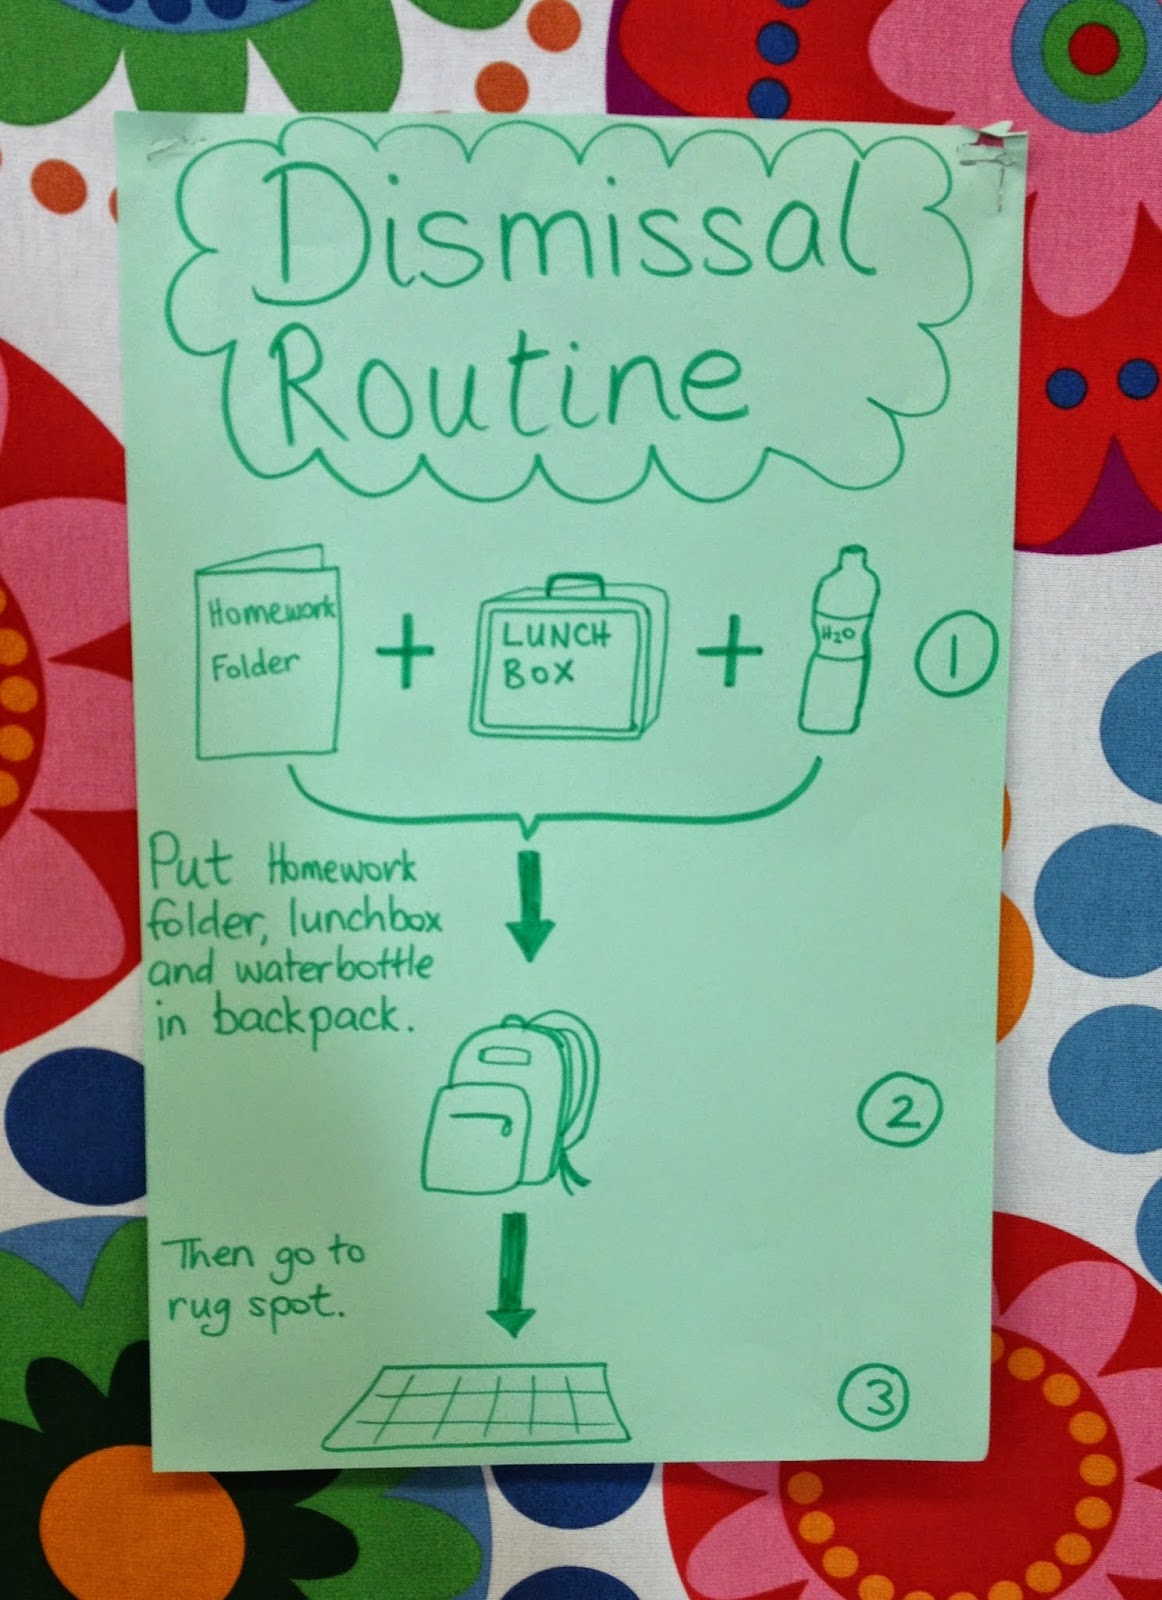 Dismissal
Routine
Homework
Folder
+
LUNCH
BOX
+
H₂O
1
Put Homework
folder, lunchbox
and waterbottle
in backpack.
2
Then go to
rug spot.
3